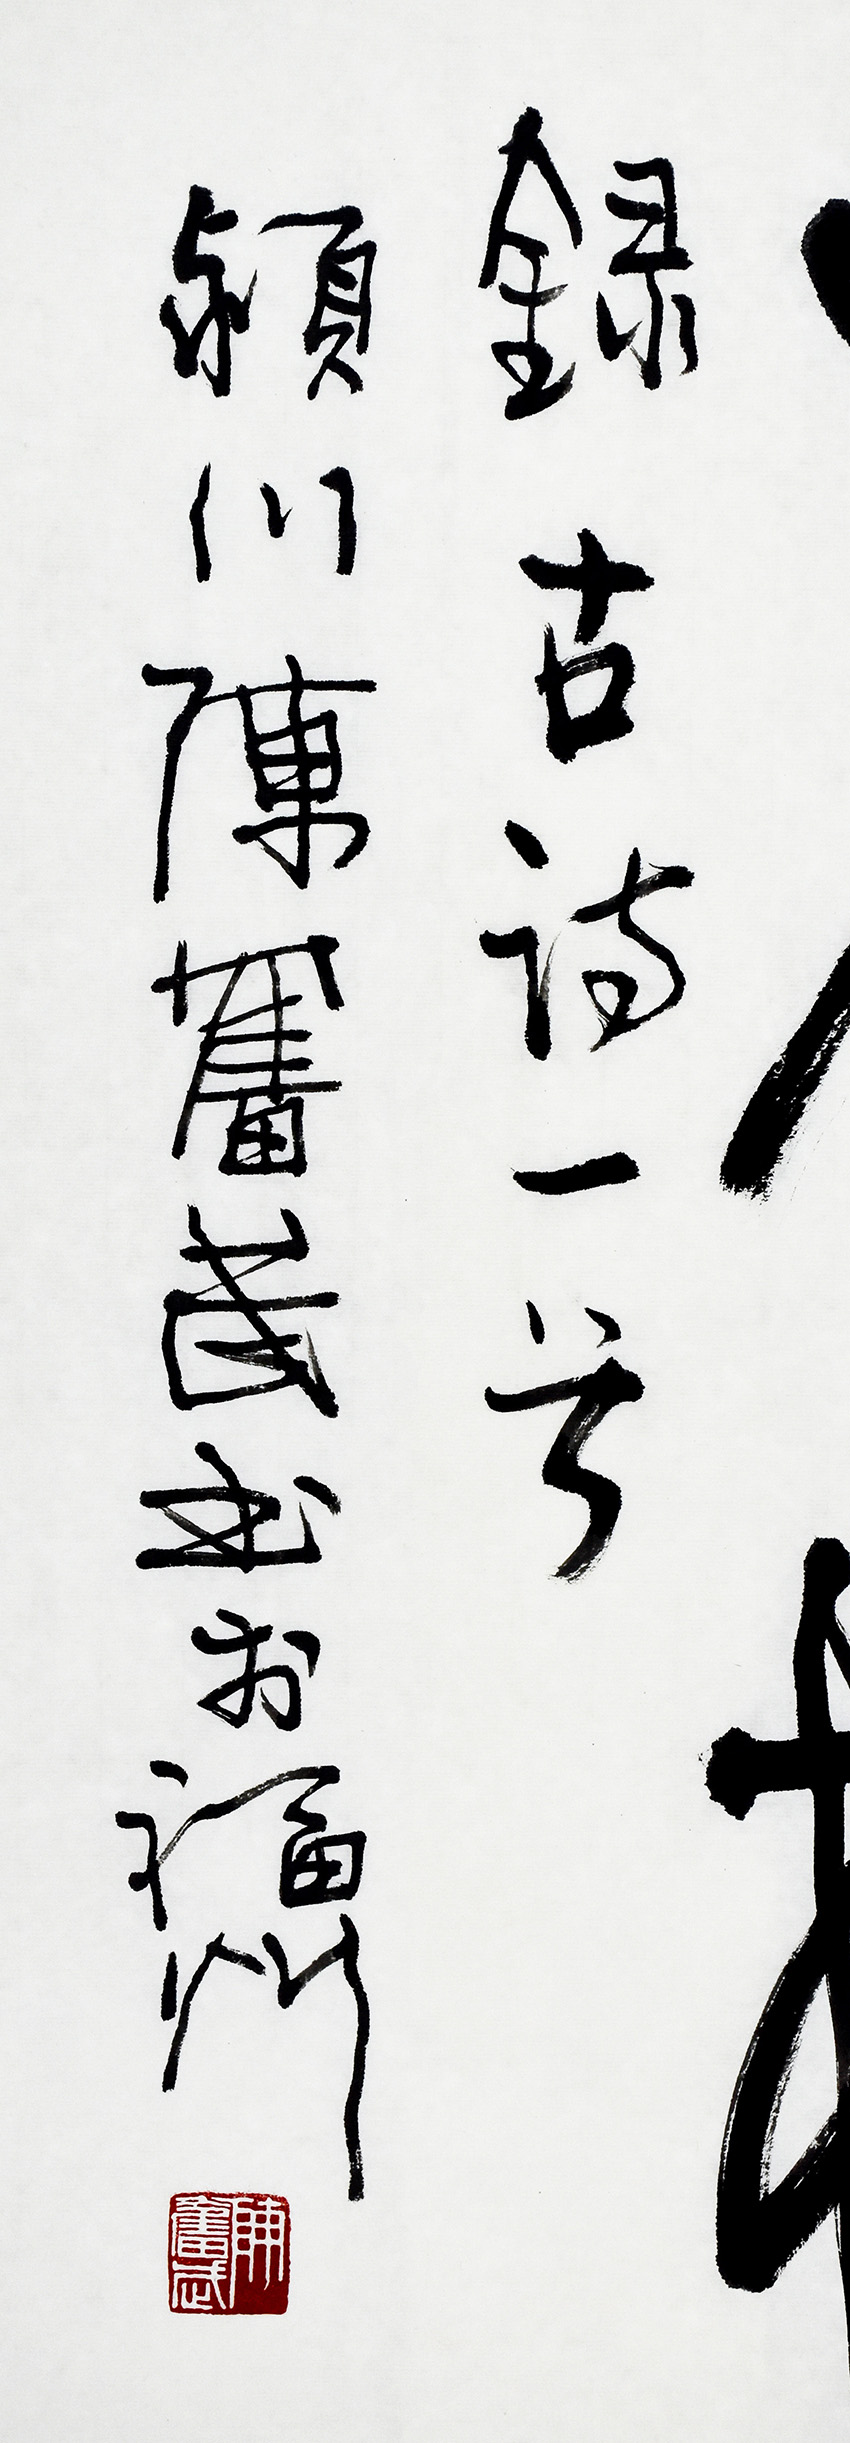 録古詩一首
潁川陳奮武书於福州
陳奮武